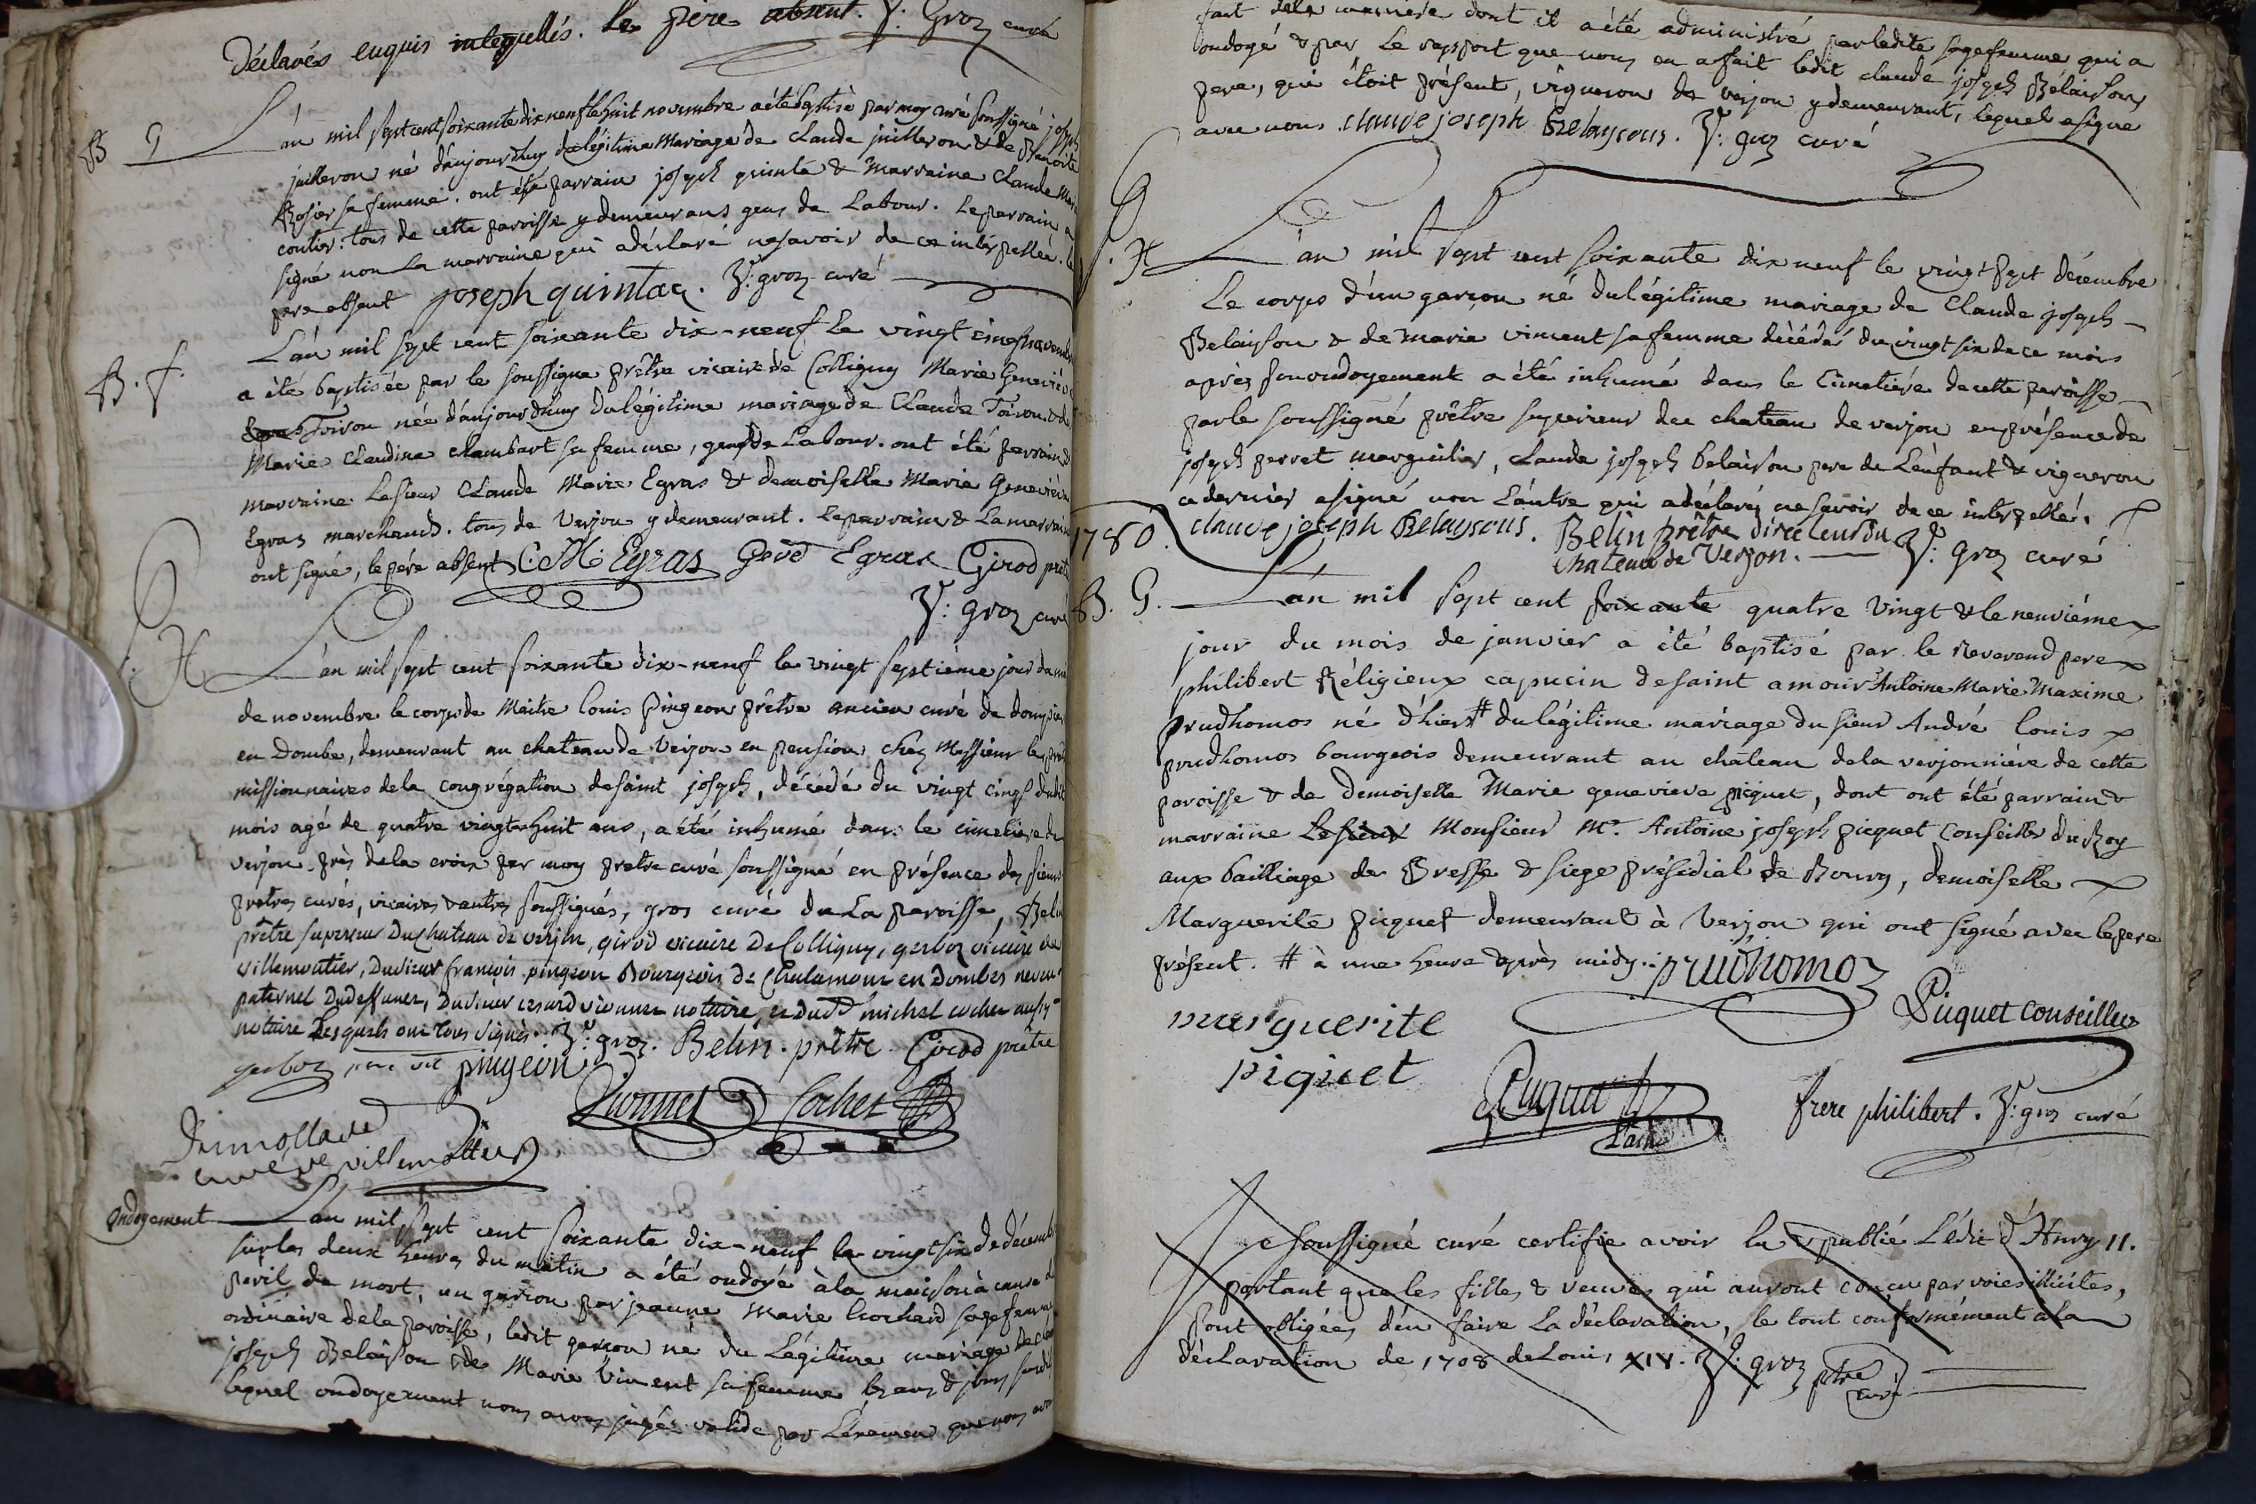 Déclarés enquis interpellés. Le père absent. Y: Groz curé
B G
L'an mil sept cent soixante dix neuf le huit novembre a été baptisé par moy curé soussigné joseph
juilleron né d'aujourdhuy du légitime Mariage de Claude juilleron & de Benoite
Rosier sa femme. ont été parrain joseph quinta & marraine Claude Marie
coutier: tous de cette parroisse y demeurans gens de Labour. Le parrain a
signé non La marraine qui a déclaré ne savoir de ce interpellée. le
pere absent joseph quintaz. Y: groz curé
B. f.
L'an mil sept cent soixante dix-neuf le vingt cinq novembre
a été baptisée par le soussigné prêtre vicaire de Colligny Marie Geneviève
Egras Toiron née d'aujourdhuy du légitime mariage de Claude Toiron & de
Marie Claudine chambart sa femme, gens de Labour. ont été parrain &
marraine Le sieur Claude Marie Egras & demoiselle Marie Geneviève
Egras marchands. tous de Verjon y demeurant. Le parrain & La marraine
ont signé, le père absent C: M: Egras Geve Egras Girod prêtre
Y: groz curé
S. H
L'an mil sept cent soixante dix-neuf le vingt septième jour du mois
de novembre le corps de Maitre louis Pingeon prêtre ancien curé de dompierre
en Dombe, demeurant au chateau de Verjon en pension chez Messieurs les prêtres
missionnaires de la congrégation de saint joseph, décédé du vingt cinq dudit
mois agé de quatre vingt huit ans, a été inhumé dans le cimetiere de
verjon près de la croix par moy prêtre curé soussigné en présence des sieurs
prêtres curés, vicaires & autres soussignés, gros curé de La paroisse, Belin
prêtre superieur du chateau de verjon, girod vicaire de Colligny, gerboz vicaire de
villemoutier, du sieur françois pingeon Bourgeois de Chalamour en Dombes neveu
paternel du deffunct, du sieur cesard vionnet notaire, & du Sr michel cochet aussy
notaire Lesquels ont tous signés. Y: groz. Belin. prêtre Girod prêtre
gerboz pingeon
Vionnet Cochet
Dumollard
curé de villemottier
Ondoyement
L'an mil sept cent soixante dix-neuf le vingt six de décembre
sur les deux heures du matin a été ondoyé à la maison à cause du
péril de mort, un garçon par jeanne Marie Cochard sagefemme
ordinaire de la paroisse, ledit garçon né du Légitime mariage de Claude
joseph Belaison & de Marie Vincent sa femme
lequel ondoyement nous avons jugés valide par L'éxamen que nous avons
fait de la manière dont il a été administré par ladite sagefemme qui a
ondoyé & par Le rapport que nous en a fait ledit claude joseph Belaison
pere, qui étoit présent, vigneron de verjon y demeurant, lequel a signé
avec nous. claude joseph Belaysons. Y: groz curé
S. H
L'an mil sept cent soixante dix neuf le vingt sept décembre
Le corps d'un garçon né du légitime mariage de Claude joseph
Belaison & de marie vincent sa femme décédé du vingt six de ce mois
après son ondoyement a été inhumé dans le Cimetière de cette paroisse
par le soussigné prêtre superieur du chateau de verjon en présence de
joseph perret marguilier, Claude joseph belaison pere de L'enfant & vigneron
ce dernier a signé non L'autre qui a déclaré ne savoir de ce interpellé.
claude joseph Belaysons. Belin prêtre directeur du
chateau de Verjon. Y: groz curé
1780.
B. G.
L'an mil sept cent soixante quatre vingt & le neuvième
jour du mois de janvier a été baptisé par le Reverend pere
philibert Réligieux capucin de saint amour Antoine Marie Maxime
prudhomos né d'hier # du légitime mariage du sieur André louis
prudhomos bourgeois demeurant au chateau de la verjonnière de cette
paroisse & de Demoiselle Marie genevieve piquet, dont ont été parrain &
marraine Le sieur Monsieur Mr. Antoine joseph picquet Conseiller du Roy
aux bailliage de Bresse & siege présidial de Bourg, demoiselle
Marguerite picquet demeurant à Verjon qui ont signé avec le pere
présent. # à une heure après midy. prudhomoz
marguerite
piquet
Piquet Conseiller
frere philibert. Y: groz curé
Je soussigné curé certifie avoir lu & publié L'édit d'Henry II.
portant que les filles & veuves qui auront concu par voies illicites,
sont obligées d'en faire La déclaration, le tout conformément à la
déclaration de 1708 de Loui, XIV. Y: groz ptre
curé